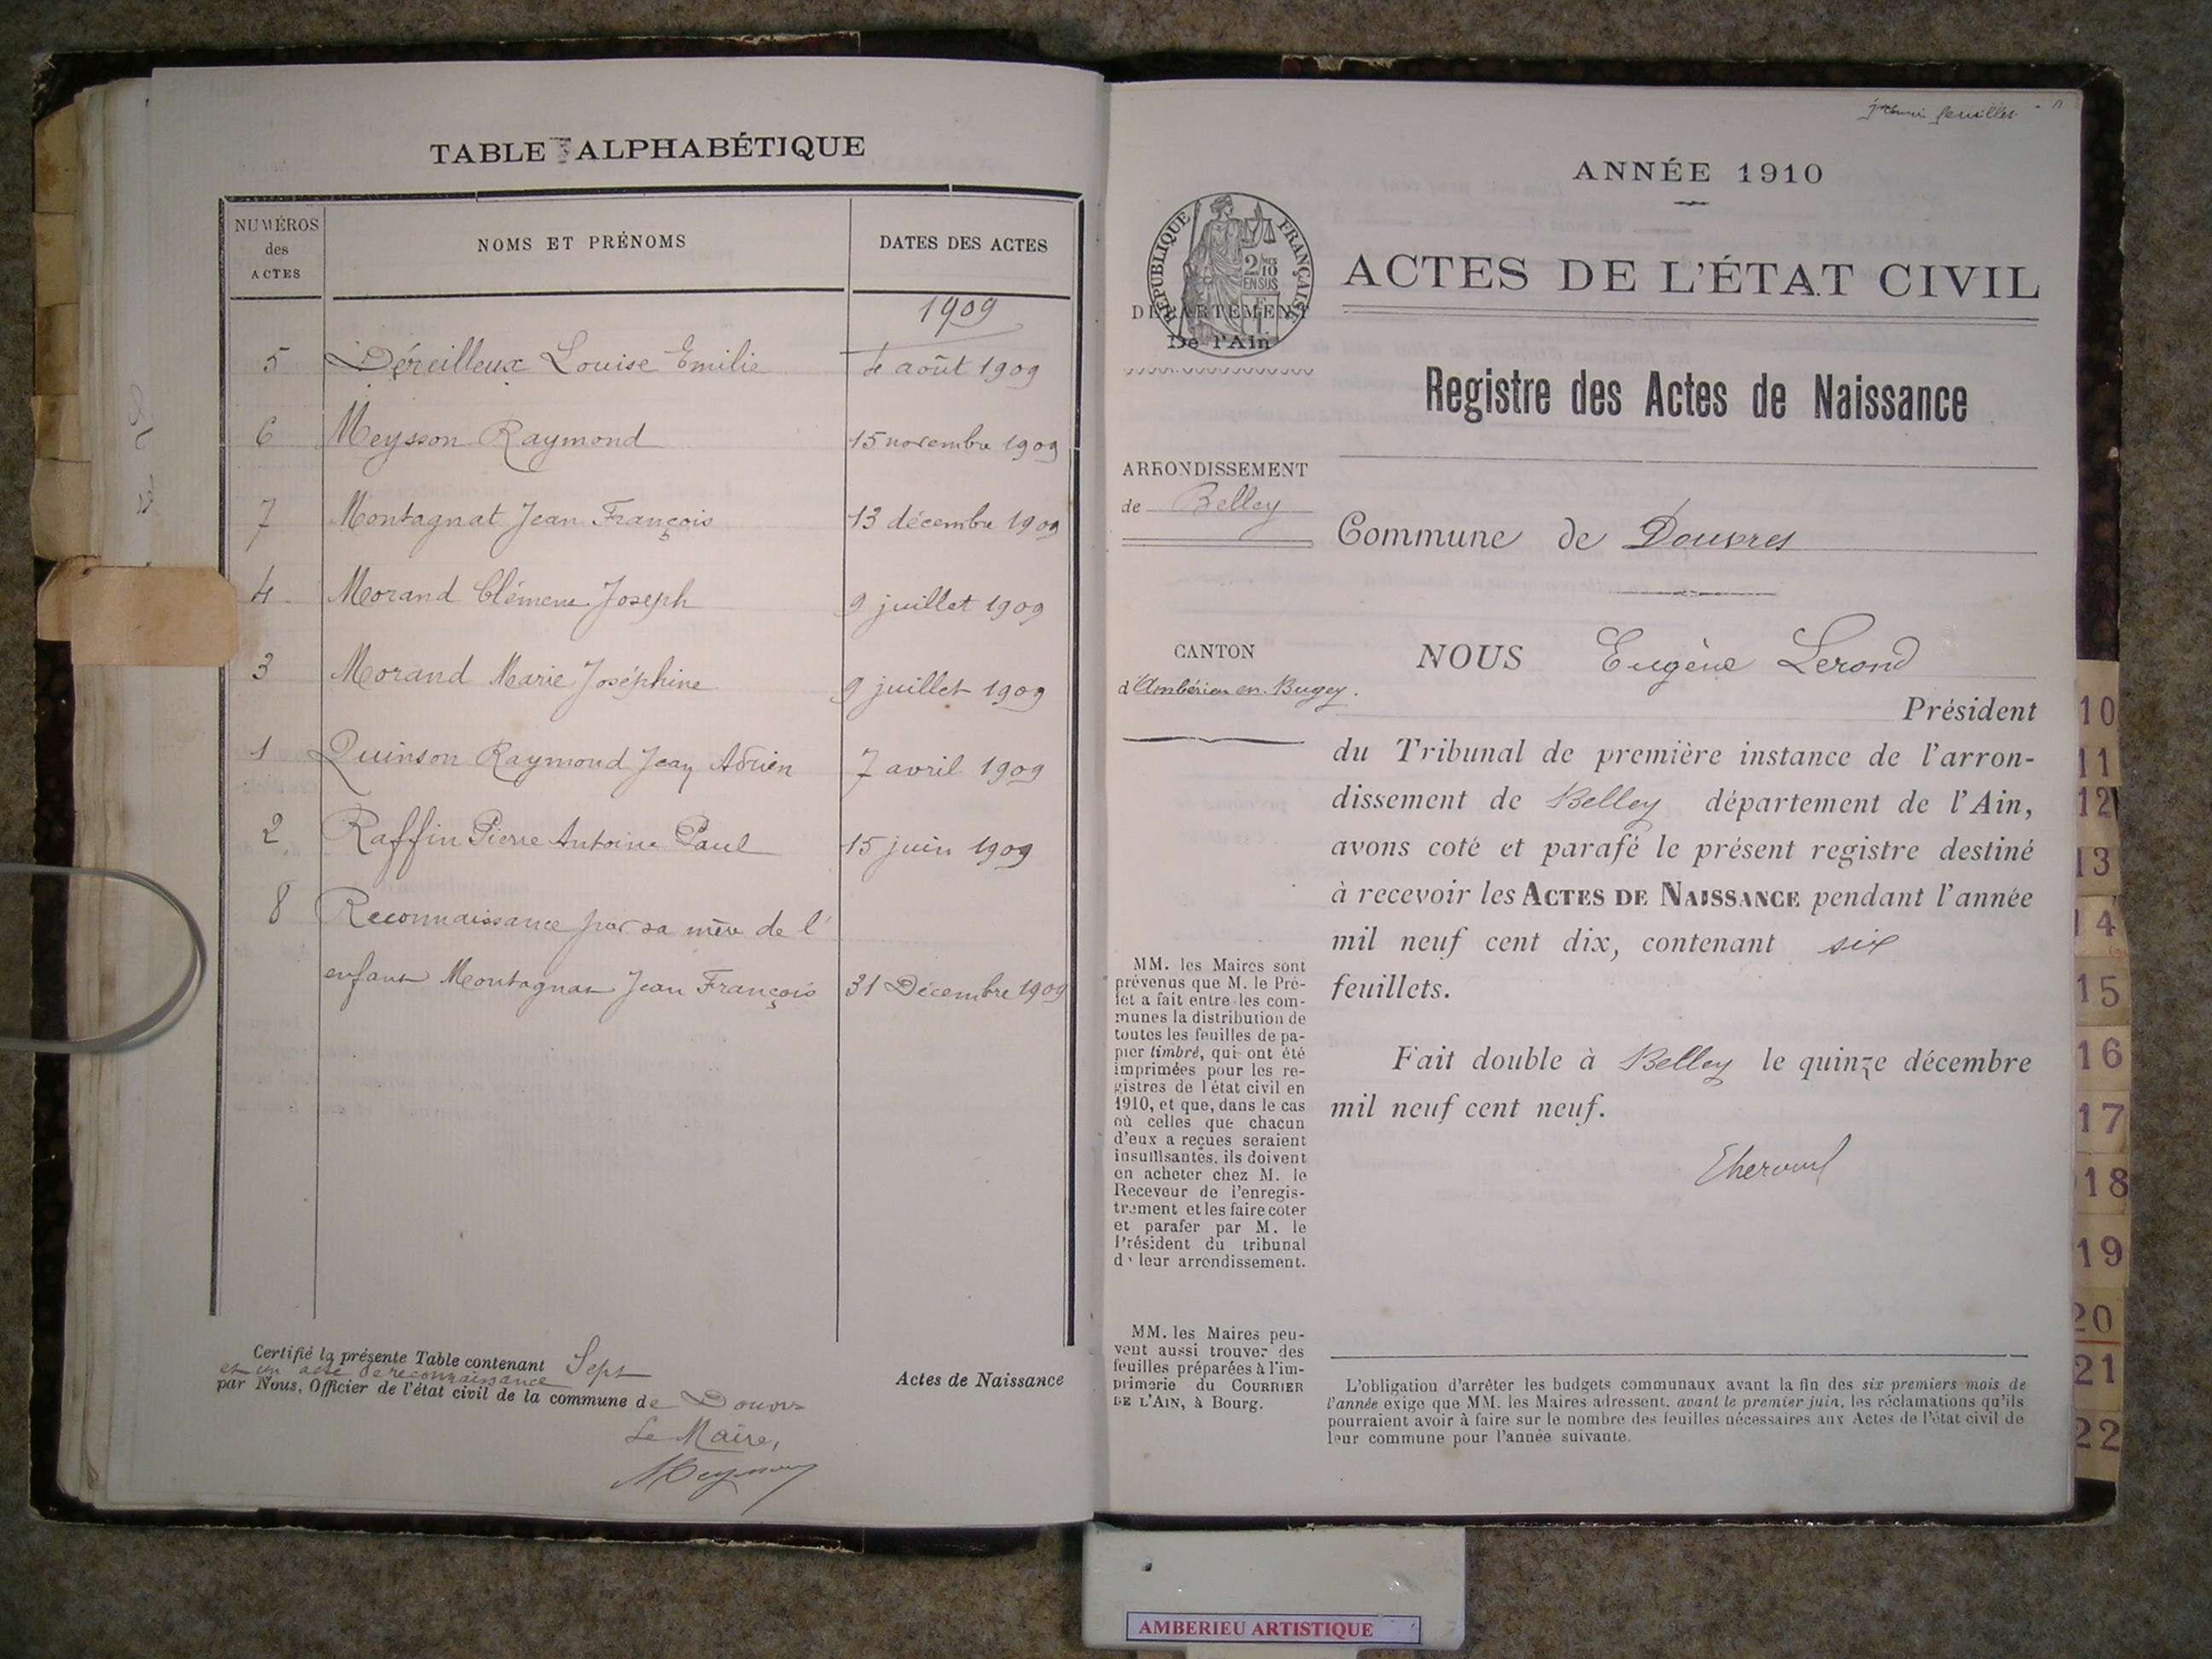 TABLE ALPHABÉTIQUE
NUMÉROS
des
ACTES
NOMS ET PRÉNOMS
DATES DES ACTES
1909
5 Déreilleux Louise Emilie 4 août 1909
6 Meysson Raymond 15 novembre 1909
7 Montagnat Jean François 13 décembre 1909
4 Morand Clémence Joseph 9 juillet 1909
3 Morand Marie Joséphine 9 juillet 1909
1 Quinson Raymond Jean Adrien 7 avril 1909
2 Raffin Pierre Antoine Paul 15 juin 1909
8 Reconnaissance par sa mère de l'
enfant Montagnat Jean François 31 Décembre 1909
Certifié la présente Table contenant Sept
et un acte de reconnaissance
Actes de Naissance
par Nous, Officier de l'état civil de la commune de Douvres
Le Maire,
feuillet
ANNÉE 1910
RÉPUBLIQUE FRANÇAISE
2/10
EN SUS
ACTES DE L'ÉTAT CIVIL
DÉPARTEMENT
De l'Ain
Registre des Actes de Naissance
ARRONDISSEMENT
de Belley
Commune de Douvres
CANTON
d'Ambérieu en Bugey.
NOUS Eugène Lerond
Président
du Tribunal de première instance de l'arron-
dissement de Belley département de l'Ain,
avons coté et parafé le présent registre destiné
à recevoir les ACTES DE NAISSANCE pendant l'année
mil neuf cent dix, contenant six
feuillets.
Fait double à Belley le quinze décembre
mil neuf cent neuf.
MM. les Maires sont
prévenus que M. le Pré-
fet a fait entre les com-
munes la distribution de
toutes les feuilles de pa-
pier timbré, qui ont été
imprimées pour les re-
gistres de l'état civil en
1910, et que, dans le cas
où celles que chacun
d'eux a reçues seraient
insuffisantes, ils doivent
en acheter chez M. le
Receveur de l'enregis-
trement et les faire coter
et parafer par M. le
Président du tribunal
de leur arrondissement.
MM. les Maires peu-
vent aussi trouver des
feuilles préparées à l'im-
primerie du COURRIER
DE L'AIN, à Bourg.
L'obligation d'arrêter les budgets communaux avant la fin des six premiers mois de
l'année exige que MM. les Maires adressent, avant le premier juin, les réclamations qu'ils
pourraient avoir à faire sur le nombre des feuilles nécessaires aux Actes de l'état civil de
leur commune pour l'année suivante.
10
11
12
13
14
15
16
17
18
19
20
21
22
AMBERIEU ARTISTIQUE